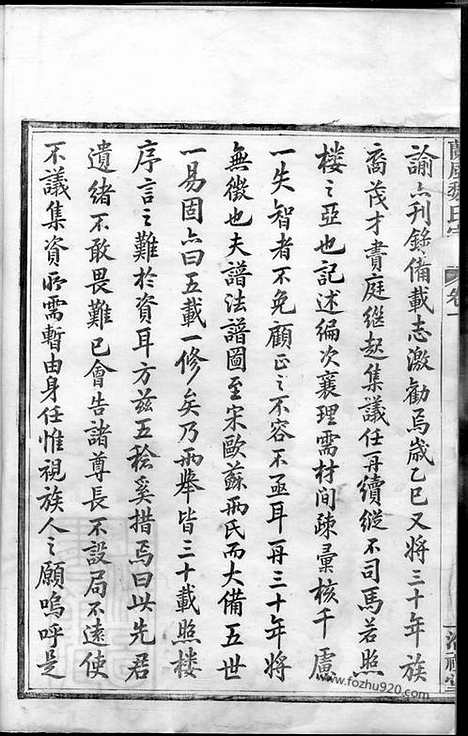 諭亦刊錄備載志激勸焉歲乙巳又將三十年族
裔茂才賚庭繼起集議任再續從不司馬若照
樓之亞也記述編次襄理需材間疎彙核千慮
一失智者不免顧正之不容不亟耳再三十年將
無徵也夫譜法譜圖至宋歐蘇兩氏而大備五世
一易固亦曰五載一修矣乃兩舉皆三十載照樓
序言之難於資耳方茲五稔奚措焉曰此先君
遺緒不敢畏難已會告諸尊長不設局不遠使
不議集資所需暫由身任惟視族人之願嗚呼是
氏
卷一
www.fozhu920.com